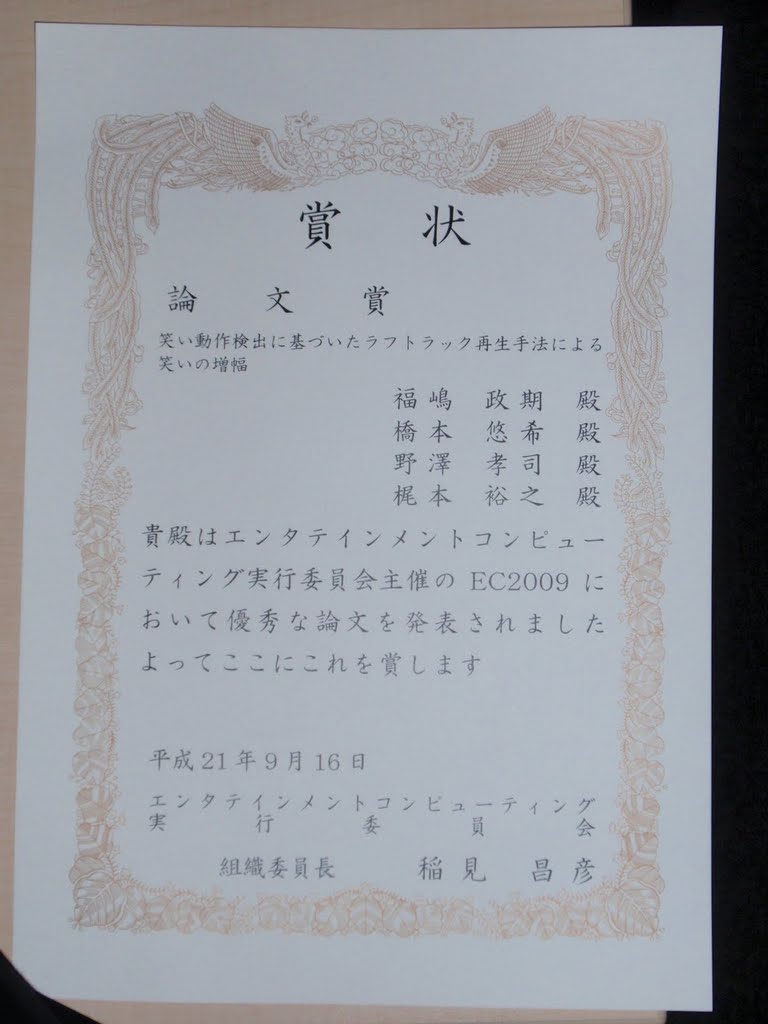 賞状
論文賞
笑い動作検出に基づいたラフトラック再生手法による
笑いの増幅
福嶋 政期 殿
橋本 悠希 殿
野澤 孝司 殿
梶本 裕之 殿
貴殿はエンタテインメントコンピュー
ティング実行委員会主催の EC2009 に
おいて優秀な論文を発表されました
よってここにこれを賞します
平成 21 年 9 月 16 日
エンタテインメントコンピューティング
実行委員会
組織委員長 稲見 昌彦